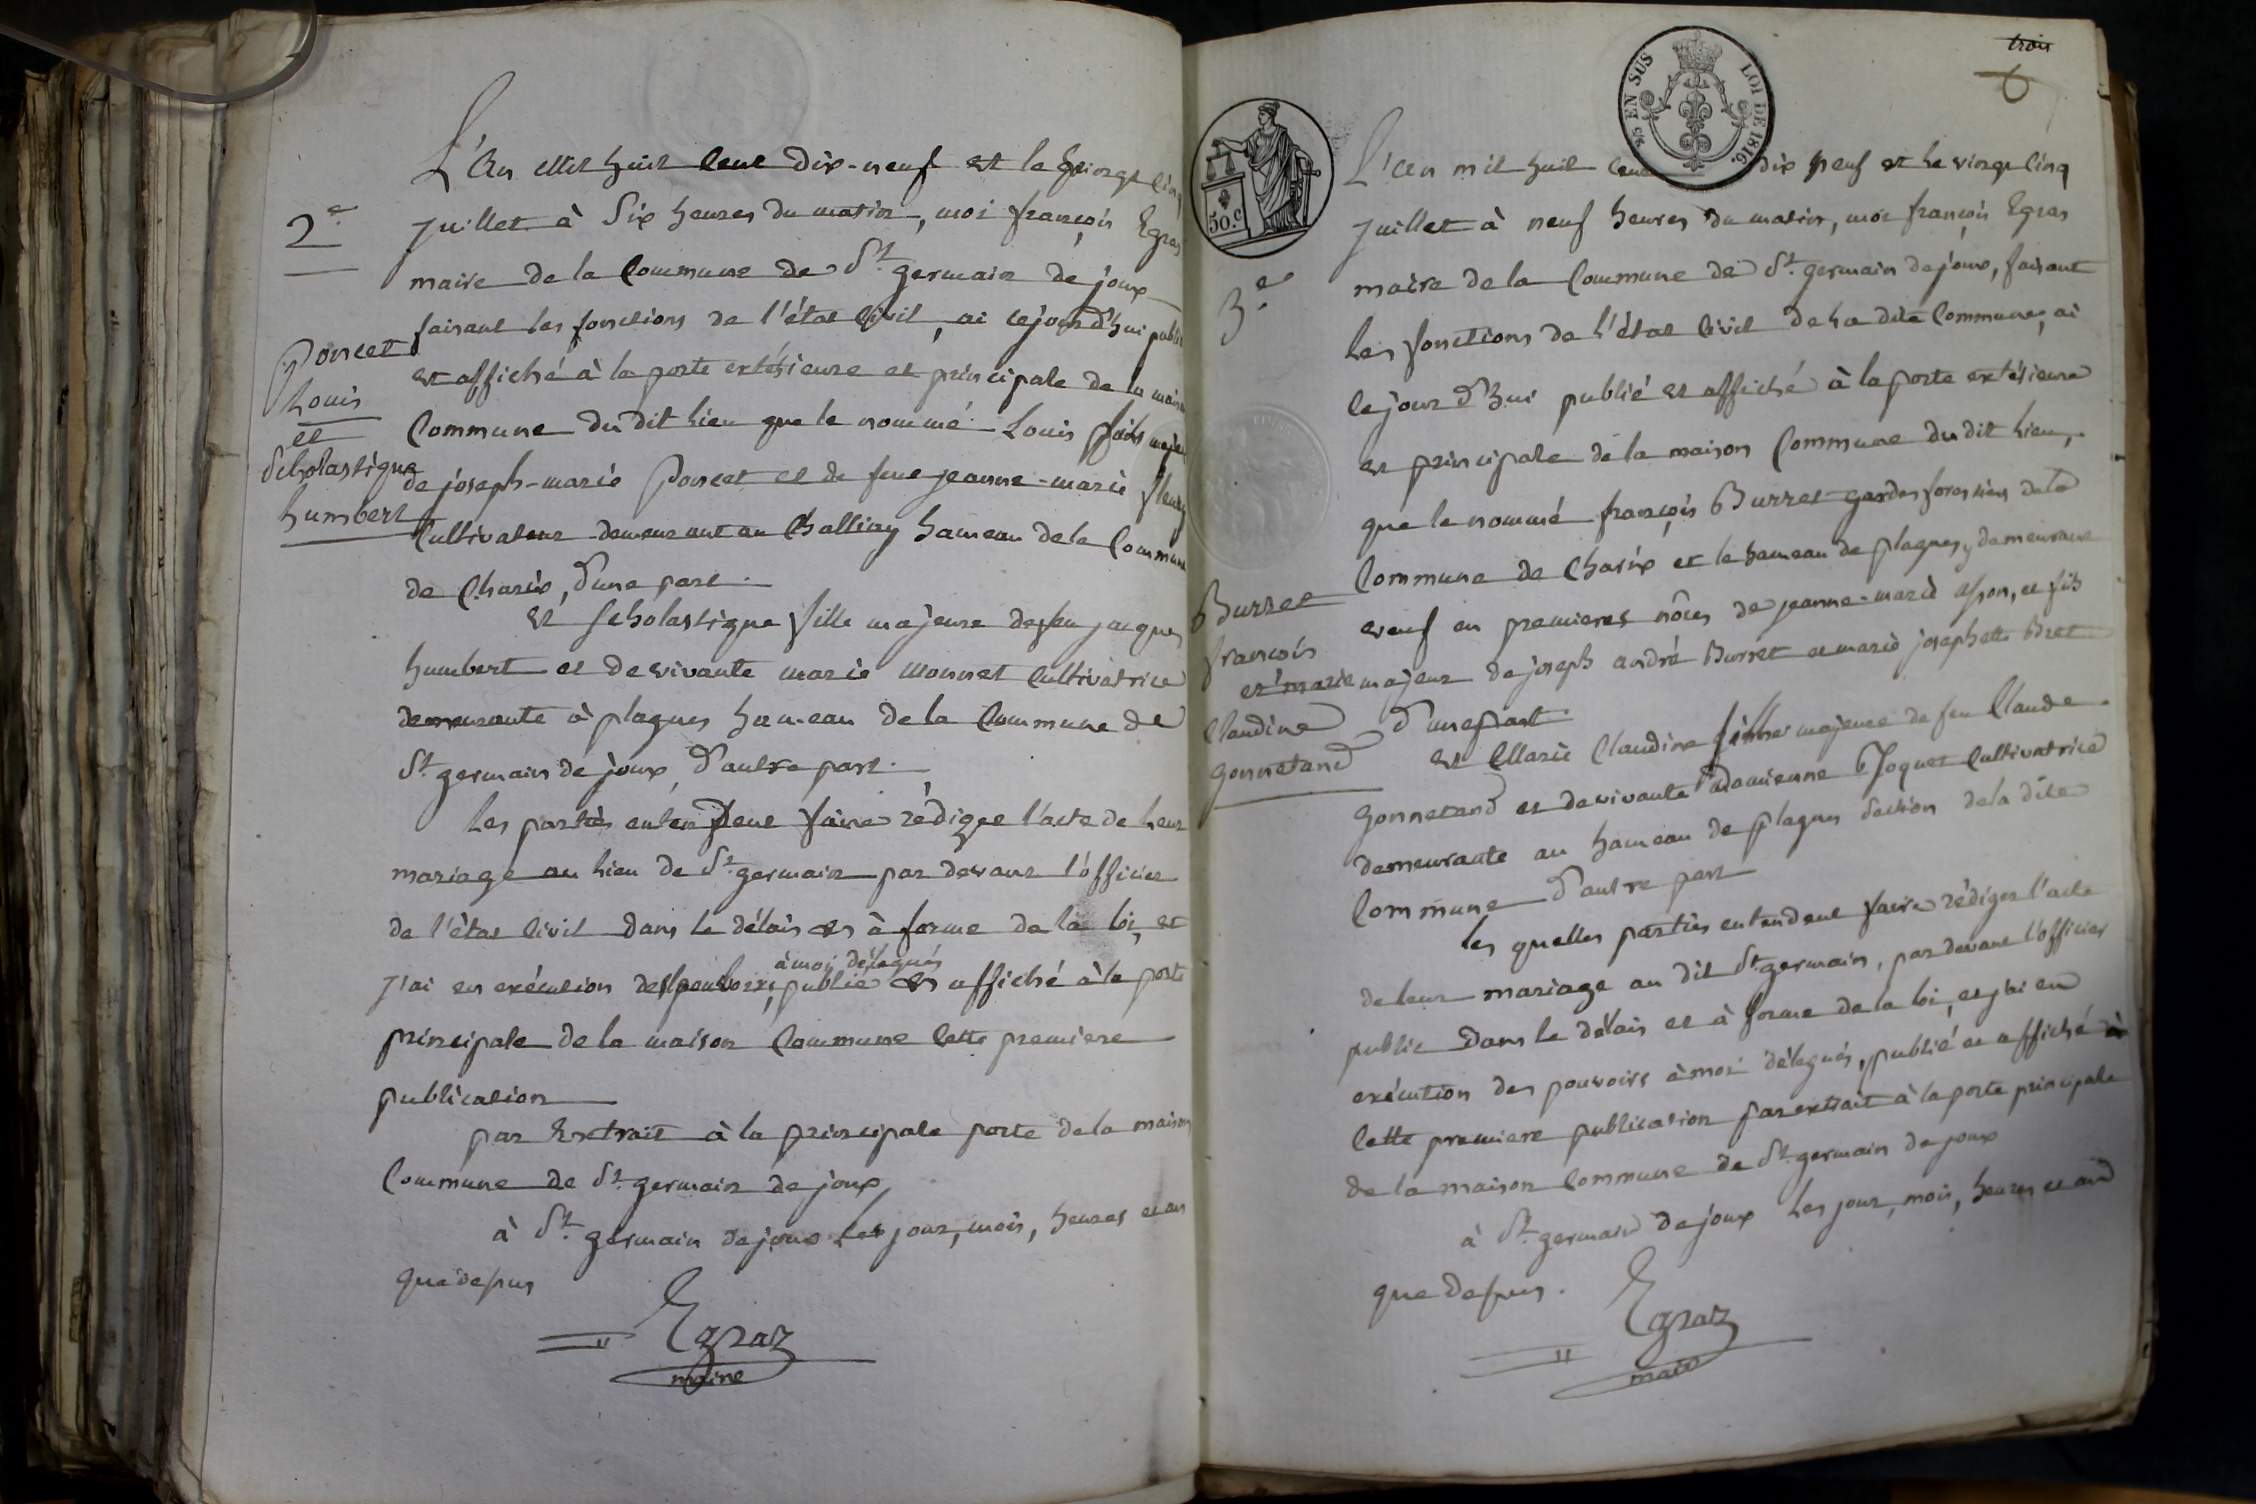 2.e
Poncet
Louis
et
Scholastique
humbert
L'An Mil huit Cent dix-neuf et le Vingt Cinq
juillet à Six heures du matin, moi françois Egras
maire de la Commune de St. germain de joux
faisant les fonctions de l'état Civil, ai cejourd'hui publié
et affiché à la porte extérieure et principale de la maison
Commune du dit lieu que le nommé Louis fils majeur
de joseph-marie Poncet et de feue jeanne-marie fleury
Cultivateur demeurant au Balliay hameau de la Commune
de Charix, d'une part.
et Scholastique fille majeure de feu jacques
humbert et de vivante marie monnet Cultivatrice
demeurante à plagnes hameau de la Commune de
St. germain de joux, d'autre part.
Les parties entendent faire rédiger l'acte de leur
mariage au lieu de St. germain par devant l'officier
de l'état Civil dans le délais et à forme de la loi, et
à moi délégués
j'ai en exécution des pouvoirs, publié et affiché à la porte
principale de la maison Commune Cette premiere
publication
par Extrait à la principale porte de la maison
Commune de St. germain de joux
à St. germain de joux les jour, mois, heures et an
que dessus
Egraz
maire
trois
6
EN SUS
LOI DE 1816.
50.c
3.e
Burret
françois
et marie
Claudine
Gonnetand
L'An mil huit Cent dix neuf et le vingt Cinq
juillet à neuf heures du matin, moi françois Egras
maire de la Commune de St. germain de joux, faisant
les fonctions de l'état Civil de la dite Commune, ai
Cejourd'hui publié et affiché à la porte extérieure
et principale de la maison Commune du dit lieu,
que le nommé françois Burret gardes forestiers de la
Commune de Charix et le hameau de plagnes, y demeurant
veuf en premieres nôces de jeanne-marie, et fils
majeur de joseph andré Burret et marie josephette Bret
d'une part.
et Marie Claudine fille majeure de feu Claude
Gonnetand et de vivante Damienne Joquet Cultivatrice
demeurante au hameau de plagnes Section de la dite
Commune d'autre part
les quelles parties entendent faire rédiger l'acte
de leur mariage au dit St. germain, par devant l'officier
public dans le délais et à forme de la loi, et j'ai en
exécution des pouvoirs à moi délégués, publié et affiché à
Cette premiere publication par extrait à la porte principale
de la maison Commune de St. germain de joux
à St. germain de joux les jour, mois, heures et an
que dessus.
Egraz
maire